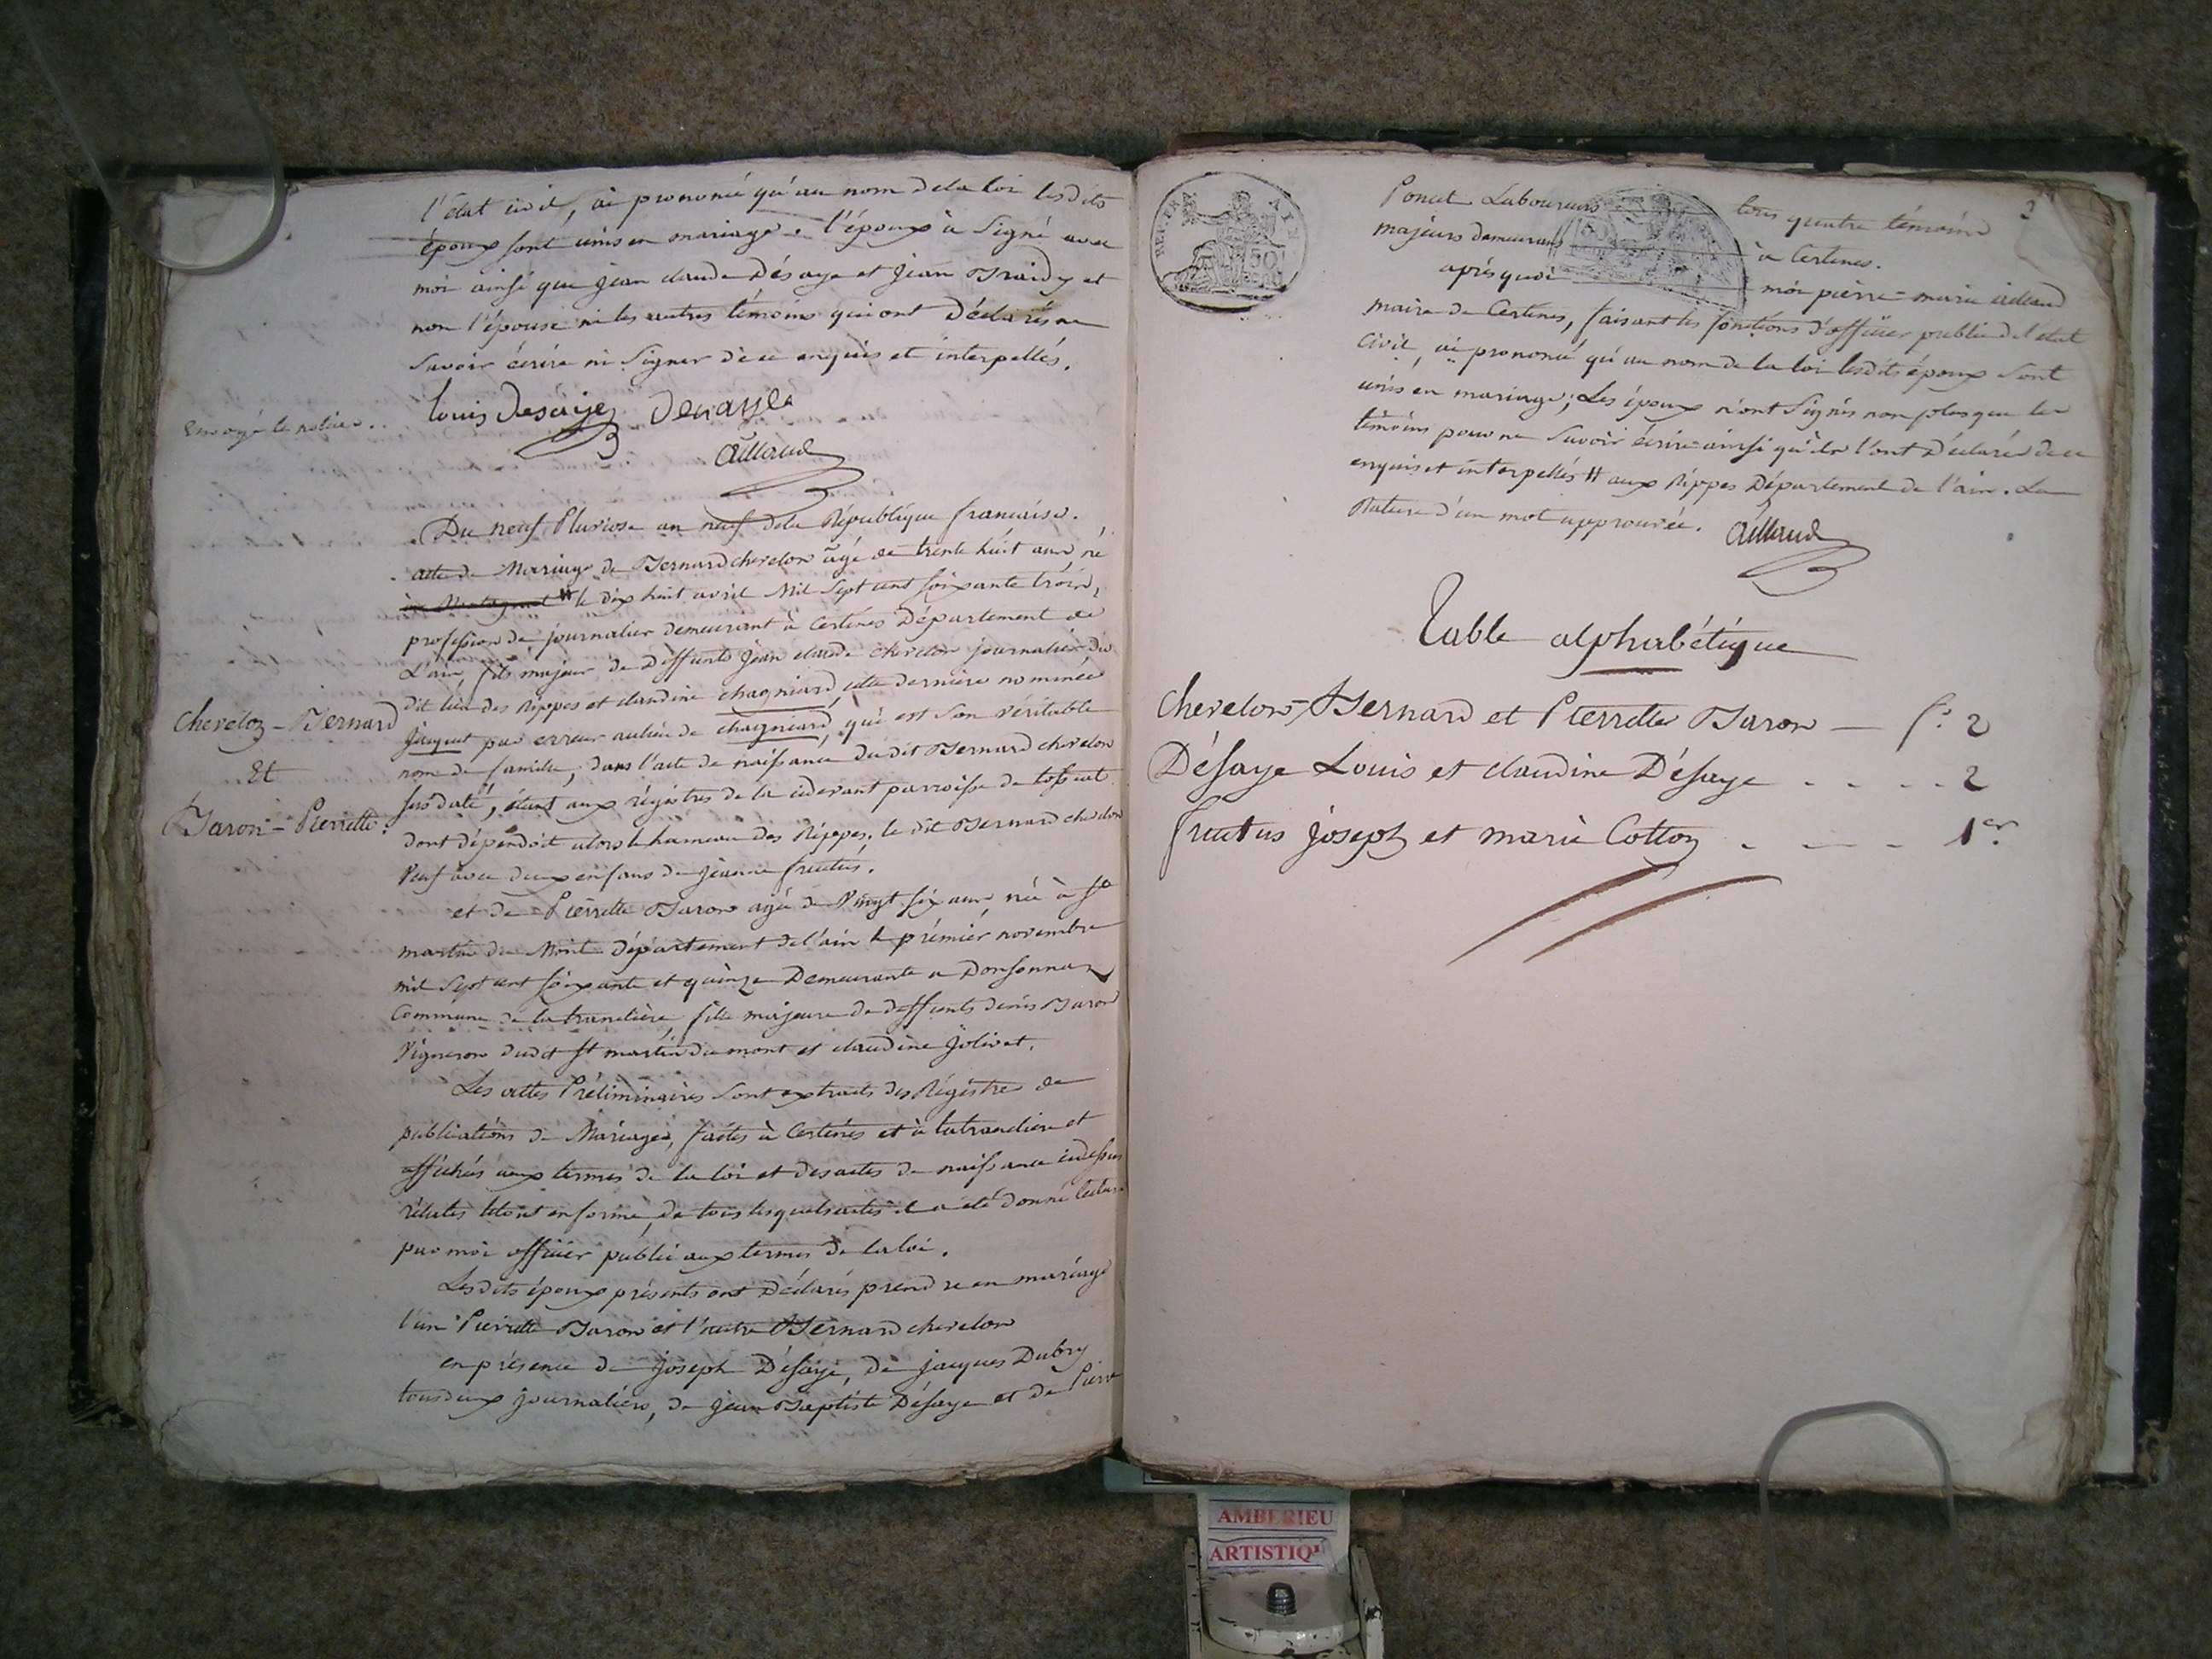 l'état civil, ai prononcé qu'au nom de la loi lesdits
époux sont unis en mariage. l'époux à Signé avec
moi ainsi que jean claude Désaye et jean Braidy et
non l'épouse ni les autres témoins qui ont Déclarés ne
Savoir écrire ni Signer de ce enquis et interpellés.
Envoyé la notice..
Louis Desaye
aillaud
Du neuf Pluviose an neuf de la République francaise.
acte de Mariage de Bernard chevelon âgé de trente huit ans, né
# le dix huit avril Mil Sept cent soixante trois,
profession de journalier demeurant à Certines Département de
L'ain, fils majeur de Deffunts Jean claude chevelon journalier du
dit lieu des Rippes et claudine chagniard, cette dernière nominée
Jaquet par erreur aulieu de chagniard, qui est son véritable
nom de famille, dans l'acte de naissance du dit Bernard chevelon
sus daté, étant aux régistres de la cidevant parroisse de tossiat
dont dépendoit alors le hameau des Rippes. le dit Bernard chevelon
Veuf avec deux enfans de jeanne fructus.
Chevelon - Bernard
Et
Baron - Pierrette.
et de Pierrette Baron agée de Vingt six ans, née à St
martin du Mont département de l'ain le prémier novembre
mil Sept cent soixante et quinze Demeurante a Donsonnaz
Commune de la tranclière, fille majeure de deffunts denis Baron
Vigneron dudit St martin du mont et claudine Jolivet.
Les actes Préliminaires Sont extraits des Régistres de
publications de Mariages, faites à Certines et à la tranclière et
affichés aux termes de la loi et des actes de naissance cidessus
rélatés le tout en forme, de tous lesquels actes il a été donné lecture
par moi officier public aux termes de la loi.
Les dits époux présents ont Déclarés prendre en mariage
l'un Pierrette Baron et l'autre Bernard chevelon
en présence de joseph Désaye, de jacques Dubry
tous deux journaliers, de jean Baptiste Désaye et de Pierre
REP. FRA.
AIN
50
2
Poncet Laboureurs tous quatre témoins
majeurs demeurans à Certines.
après quoi moi pierre-marie aillaud
maire de Certines, faisant les fonctions d'officier public de l'état
Civil, ai prononcé qu'au nom de la loi lesdits époux Sont
unis en mariage; Les époux n'ont Signés non plus que les
témoins pour ne Savoir écrire ainsi qu'ils l'ont Déclarés de ce
enquis et interpellés # aux Rippes Département de l'ain. La
Rature d'un mot approuvée.
aillaud
Table alphabétique
Chevelon - Bernard et Pierrette Baron — f.° 2
Désaye Louis et claudine Désaye . . . . 2
fructus joseph et marie Cotton . . . . 1er.
AMBERIEU
ARTISTIQ